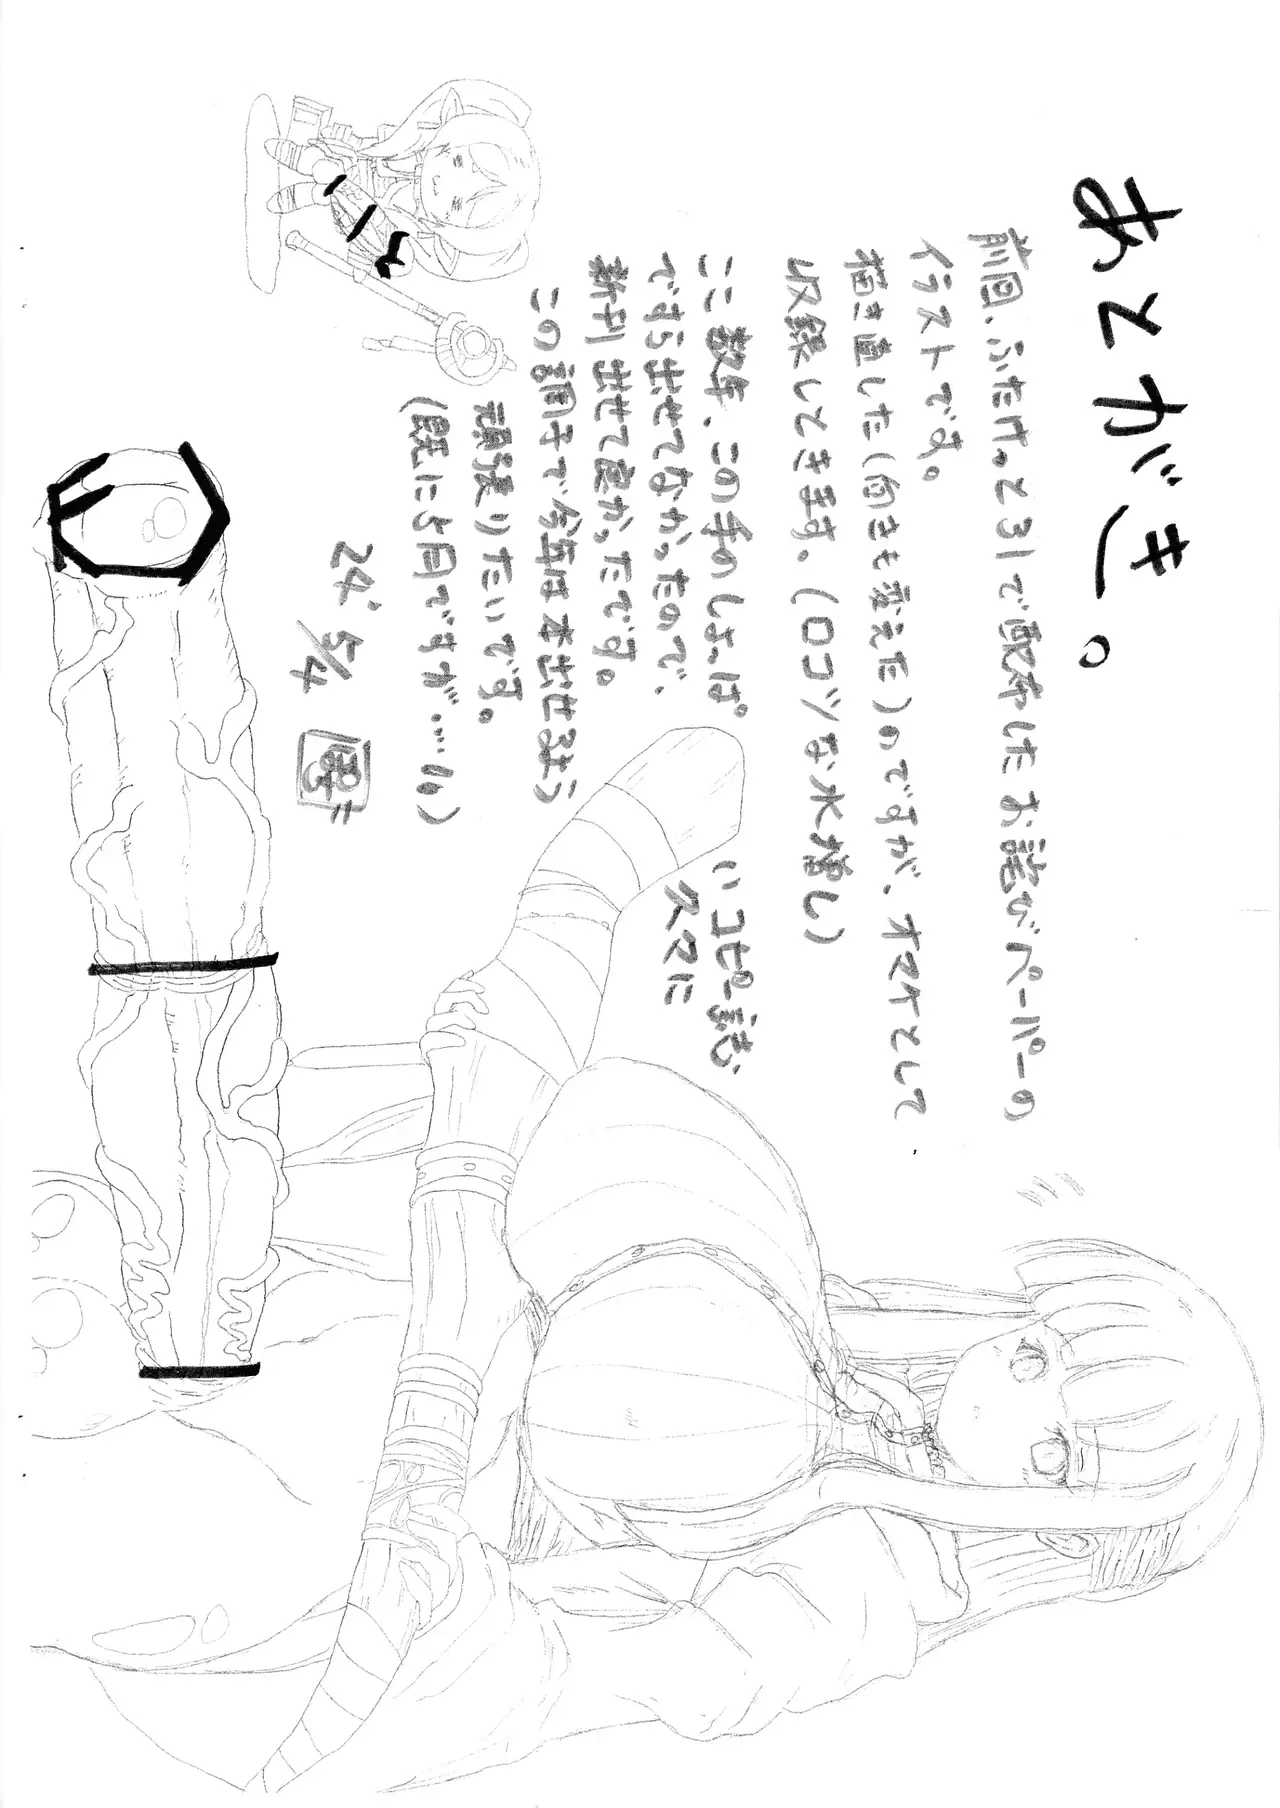 あとがき。
前回、ふたけっと31で配布したお詫びペーパーの
イラストです。
描き直した(向きも変えた)のですが、オマケとして
収録しときます。(ロコツな水増し)
ここ数年、この手のしょっぱい
コピー誌
ですら出せてなかったので、
久々に
新刊出せて良かったです。
この調子で今年は本出せるよう
頑張りたいです。
(既に5月ですが…!!)
24' 5/4